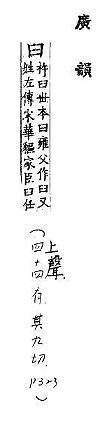 廣韻
臼
杵臼世本曰雍父作臼又
姓左傳宋華貙家臣臼任
(上聲
四十四有.其九切.P323)